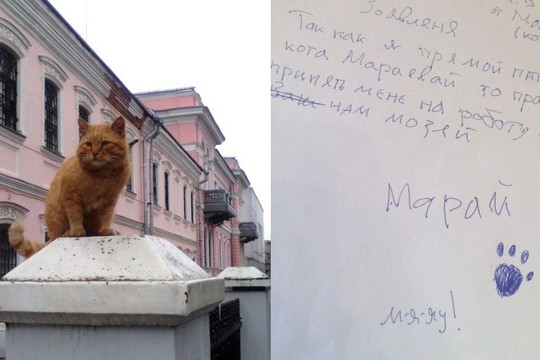 от Ма
(ко
Заявленя
Так как я прямой пат
кота Мараевай то пра
принять мене на роботу
нам мозей
Марай
м-я-яу!